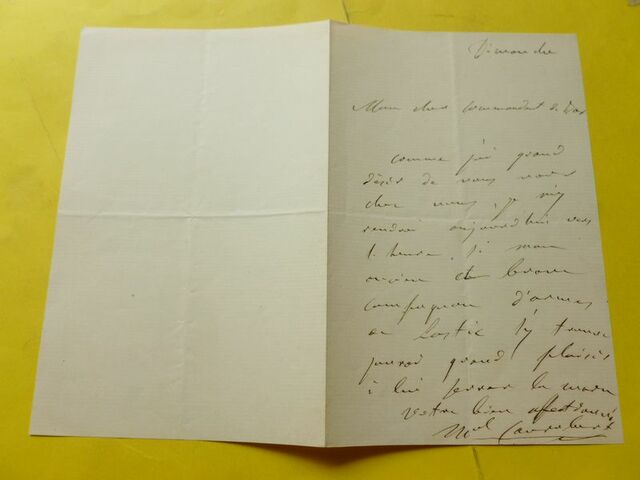 Dimanche
Mon cher Commandant
comme j'ai grand
désir de vous voir
chez vous, je m'y
rendrai aujourd'hui vers
1 heure. Si mon
ancien et brave
compagnon d'armes
de Lastic s'y trouve
j'aurai grand plaisir
à lui serrer la main
Votre bien affectionné
Mal Canrobert